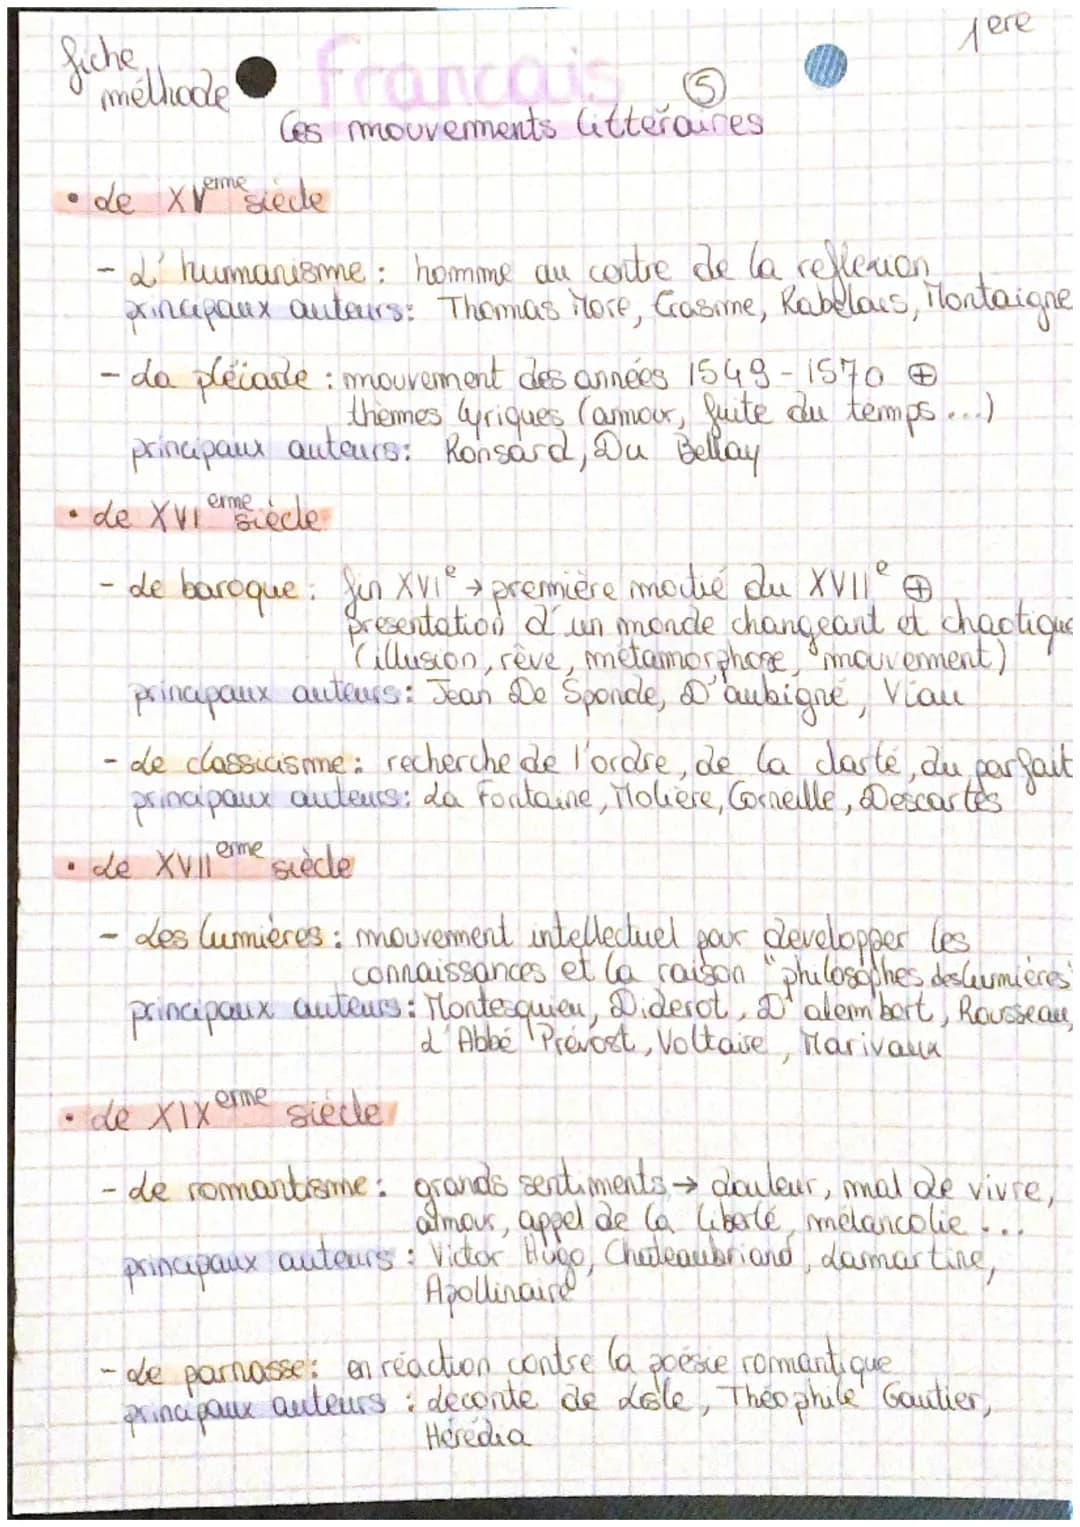 fiche
méthode
Français
1ère
5
les mouvements littéraires
• Le XVeme siècle
- L'humanisme : homme au centre de la reflexion
principaux auteurs : Thomas More, Erasme, Rabelais, Montaigne
- La pléiade : mouvement des années 1549 - 1570 ⊕
thèmes lyriques (amour, fuite du temps ...)
principaux auteurs : Ronsard, Du Bellay
• Le XVIeme siècle
- Le baroque : fin XVIe → première moitié du XVIIe ⊕
présentation d'un monde changeant et chaotique
(illusion, rêve, métamorphose, mouvement)
principaux auteurs : Jean De Sponde, D'aubigné, Viau
- Le classicisme : recherche de l'ordre, de la clarté, du parfait
principaux auteurs : La Fontaine, Molière, Corneille, Descartes
• Le XVIIeme siècle
- Les lumières : mouvement intellectuel pour développer les
connaissances et la raison "philosophes des lumières"
principaux auteurs : Montesquieu, Diderot, D'alembert, Rousseau,
L'Abbé Prévost, Voltaire, Marivaux
• Le XIXeme siècle
- Le romantisme : grands sentiments → douleur, mal de vivre,
amour, appel de la liberté, mélancolie ...
principaux auteurs : Victor Hugo, Chateaubriand, Lamartine,
Apollinaire
- Le parnasse : en réaction contre la poésie romantique
principaux auteurs : Leconte de Lisle, Théophile Gautier,
Hérédia